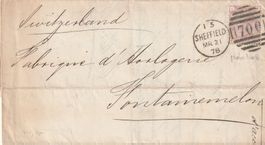 Switzerland
15
SHEFFIELD
MR 21
78
700
Fabrique d'Horlogerie
Fontainemelon